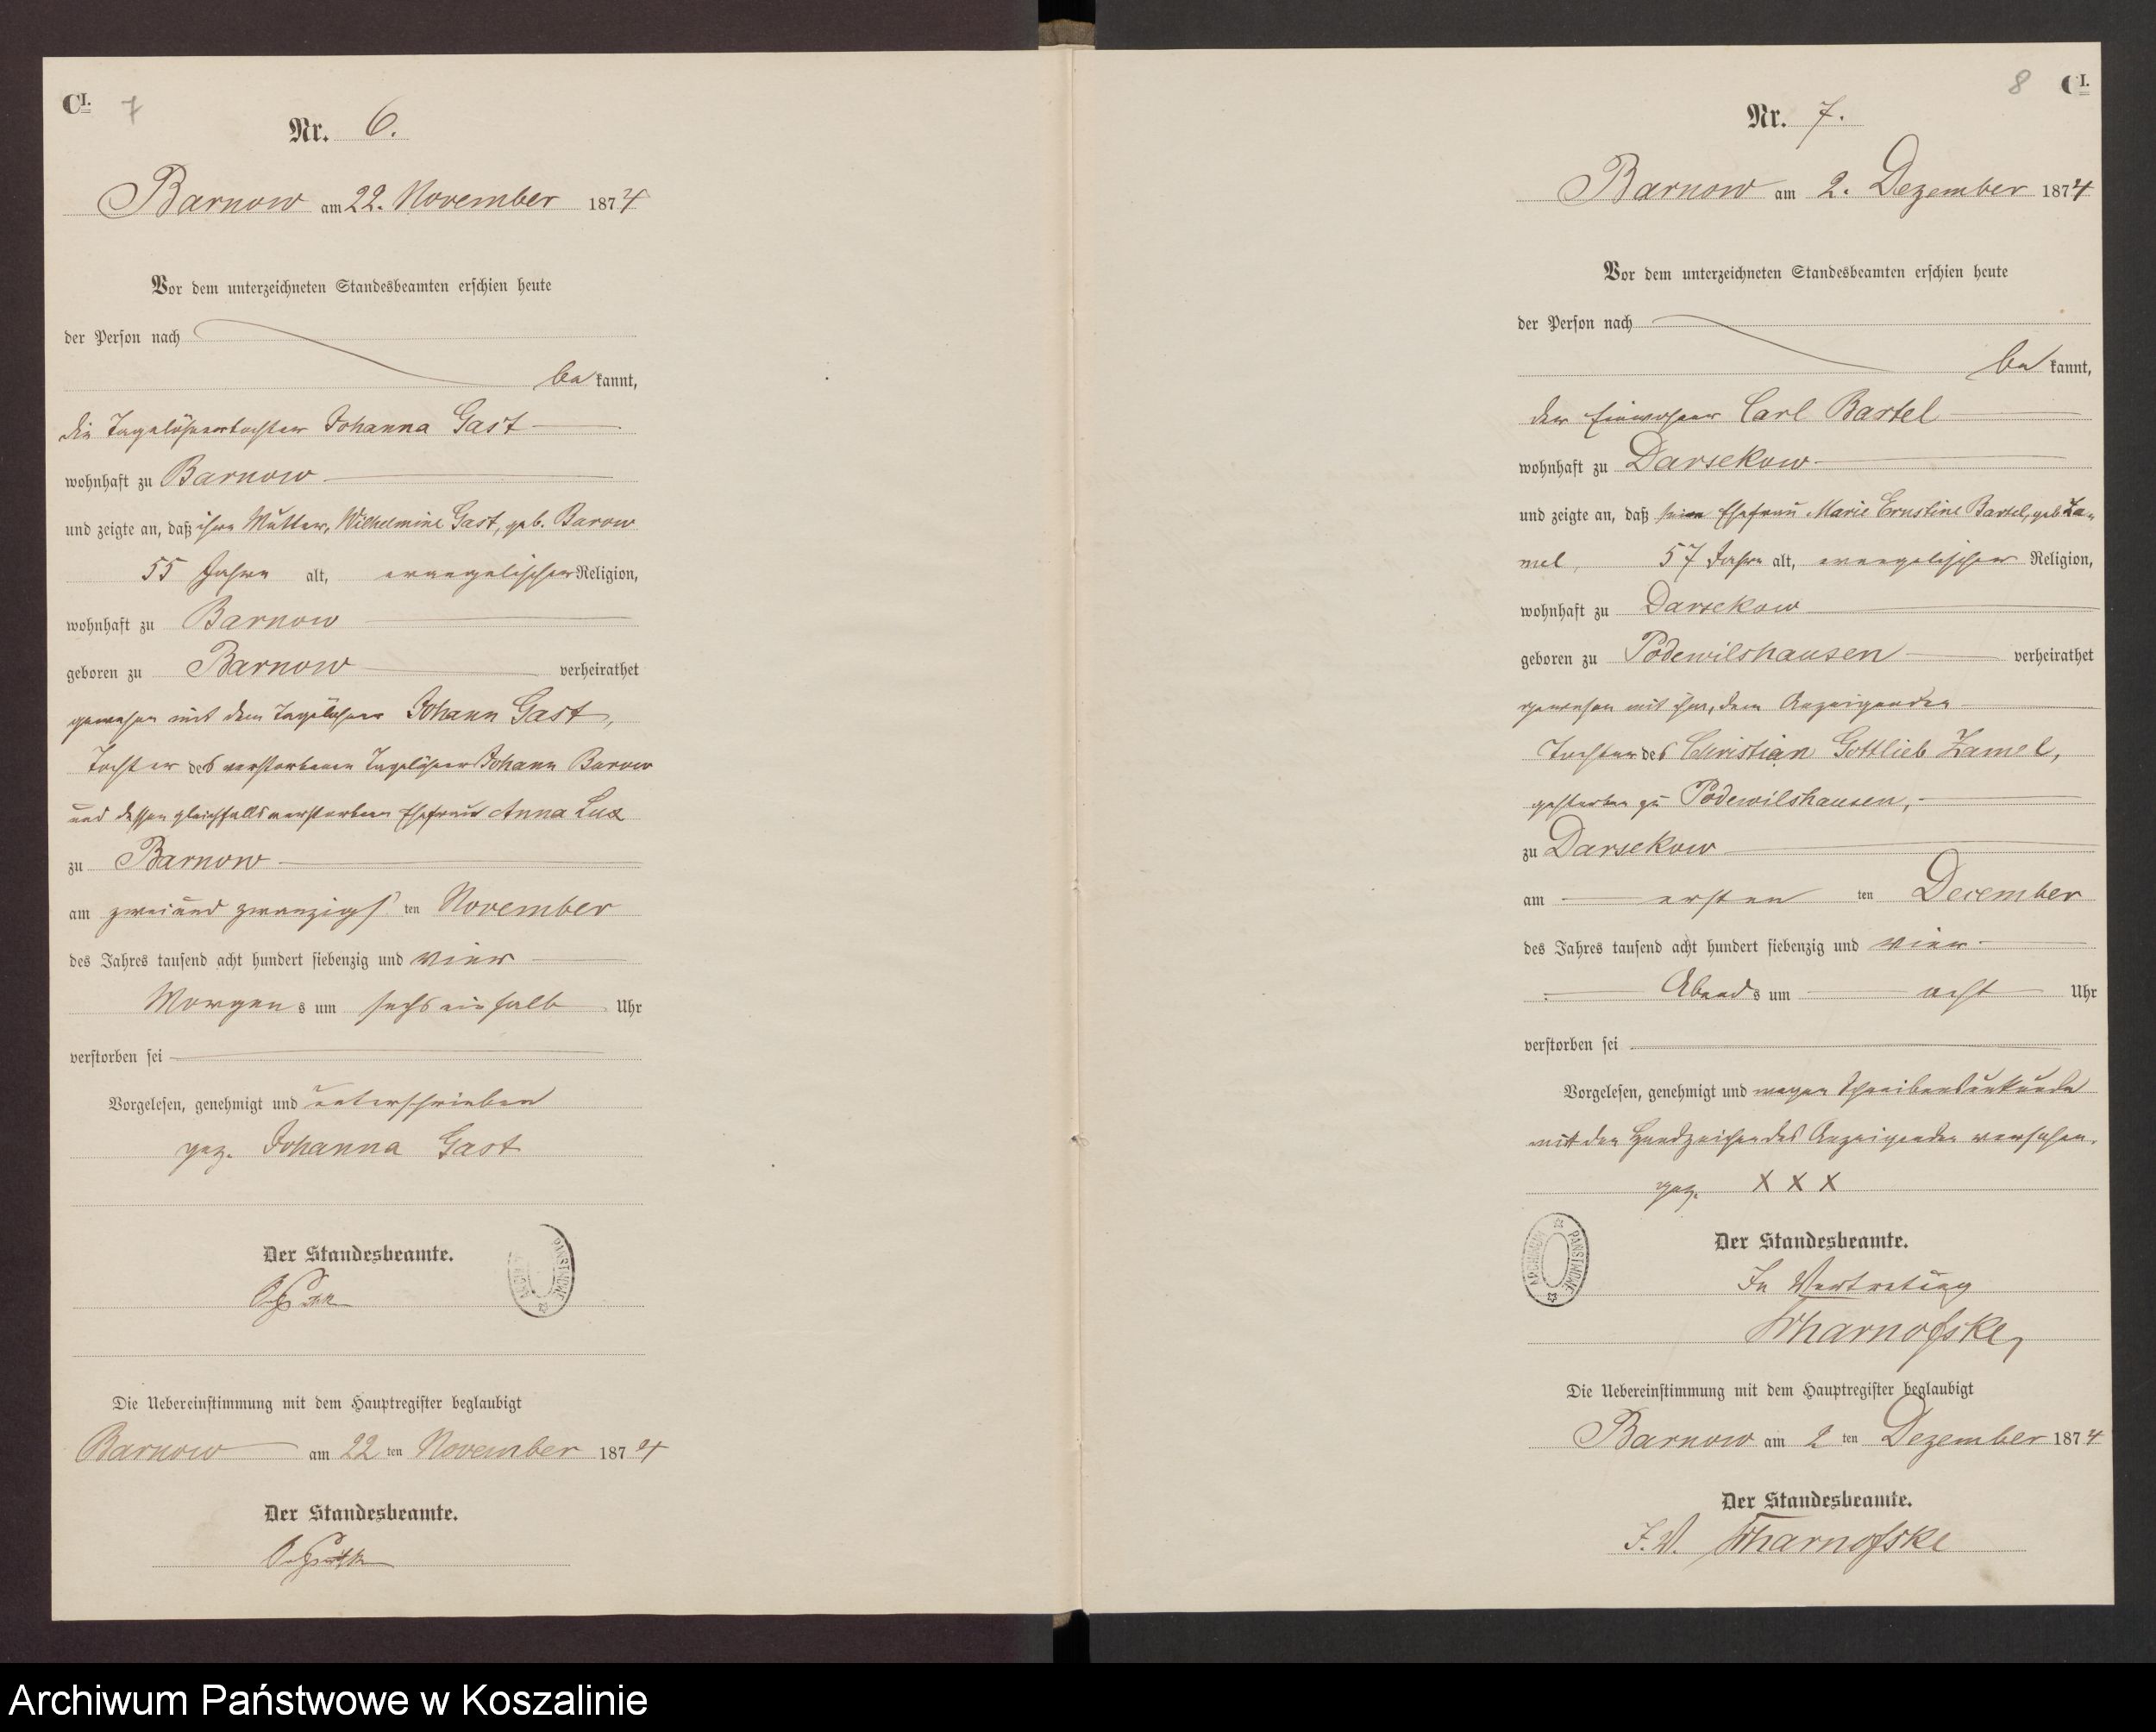 CI. 7
Nr. 6.
Barnow am 22. November 1874
Vor dem unterzeichneten Standesbeamten erschien heute
der Person nach
be kannt,
die Tagelöhnertochter Johanna Gast
wohnhaft zu Barnow
und zeigte an, daß ihre Mutter, Wilhelmine Gast, geb. Barow
55 Jahre alt, evangelischer Religion,
wohnhaft zu Barnow
geboren zu Barnow verheirathet
gewesen mit dem Tagelöhner Johann Gast,
Tochter des verstorbenen Tagelöhner Johann Barow
und dessen gleichfalls verstorbenen Ehefrau Anna Lux
zu Barnow
am zwei und zwanzigs ten November
des Jahres tausend acht hundert siebenzig und vier
Morgen s um sechs ein halb Uhr
verstorben sei
Vorgelesen, genehmigt und unterschrieben
gez. Johanna Gast
Der Standesbeamte.
ARCHIWUM PAŃSTWOWE
Die Uebereinstimmung mit dem Hauptregister beglaubigt
Barnow am 22 ten November 1874
Der Standesbeamte.
8 CI.
Nr. 7.
Barnow am 2. Dezember 1874
Vor dem unterzeichneten Standesbeamten erschien heute
der Person nach
be kannt,
der Einwohner Carl Bartel
wohnhaft zu Darsekow
und zeigte an, daß seine Ehefrau Marie Ernstine Bartel, geb. Za-
mel, 57 Jahre alt, evangelischer Religion,
wohnhaft zu Darsekow
geboren zu Podewilshausen verheirathet
gewesen mit ihm, dem Anzeigenden
Tochter des Christian Gottlieb Zamel,
gestorben zu Podewilshausen,
zu Darsekow
am ersten ten December
des Jahres tausend acht hundert siebenzig und vier
Abend s um acht Uhr
verstorben sei
Vorgelesen, genehmigt und wegen Schreibensunkunde
mit den Handzeichen des Anzeigenden versehen.
gez. X X X
ARCHIWUM PAŃSTWOWE
Der Standesbeamte.
In Vertretung
Die Uebereinstimmung mit dem Hauptregister beglaubigt
Barnow am 2 ten Dezember 1874
Der Standesbeamte.
J. V.
Archiwum Państwowe w Koszalinie